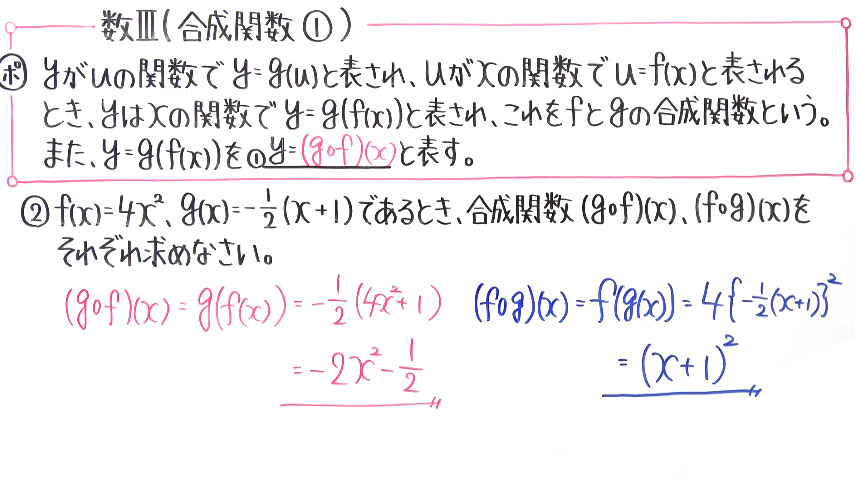 数Ⅲ(合成関数①)
ポ yがuの関数でy=g(u)と表され、uがxの関数でu=f(x)と表される
とき、yはxの関数でy=g(f(x))と表され、これをfとgの合成関数という。
また、y=g(f(x))を①y=(g∘f)(x)と表す。
② f(x)=4x²、g(x)=-1/2(x+1)であるとき、合成関数(g∘f)(x)、(f∘g)(x)を
それぞれ求めなさい。
(g∘f)(x)=g(f(x))=-1/2(4x²+1)
=-2x²-1/2
(f∘g)(x)=f(g(x))=4{-1/2(x+1)}²
=(x+1)²